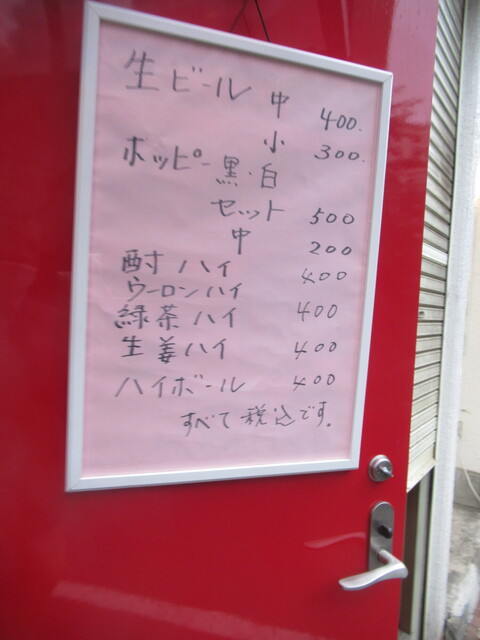 生ビール 中 400.
小 300.
ホッピー黒・白
セット 500
中 200
酎ハイ 400
ウーロンハイ
緑茶ハイ 400
生姜ハイ 400
ハイボール 400
すべて税込です。